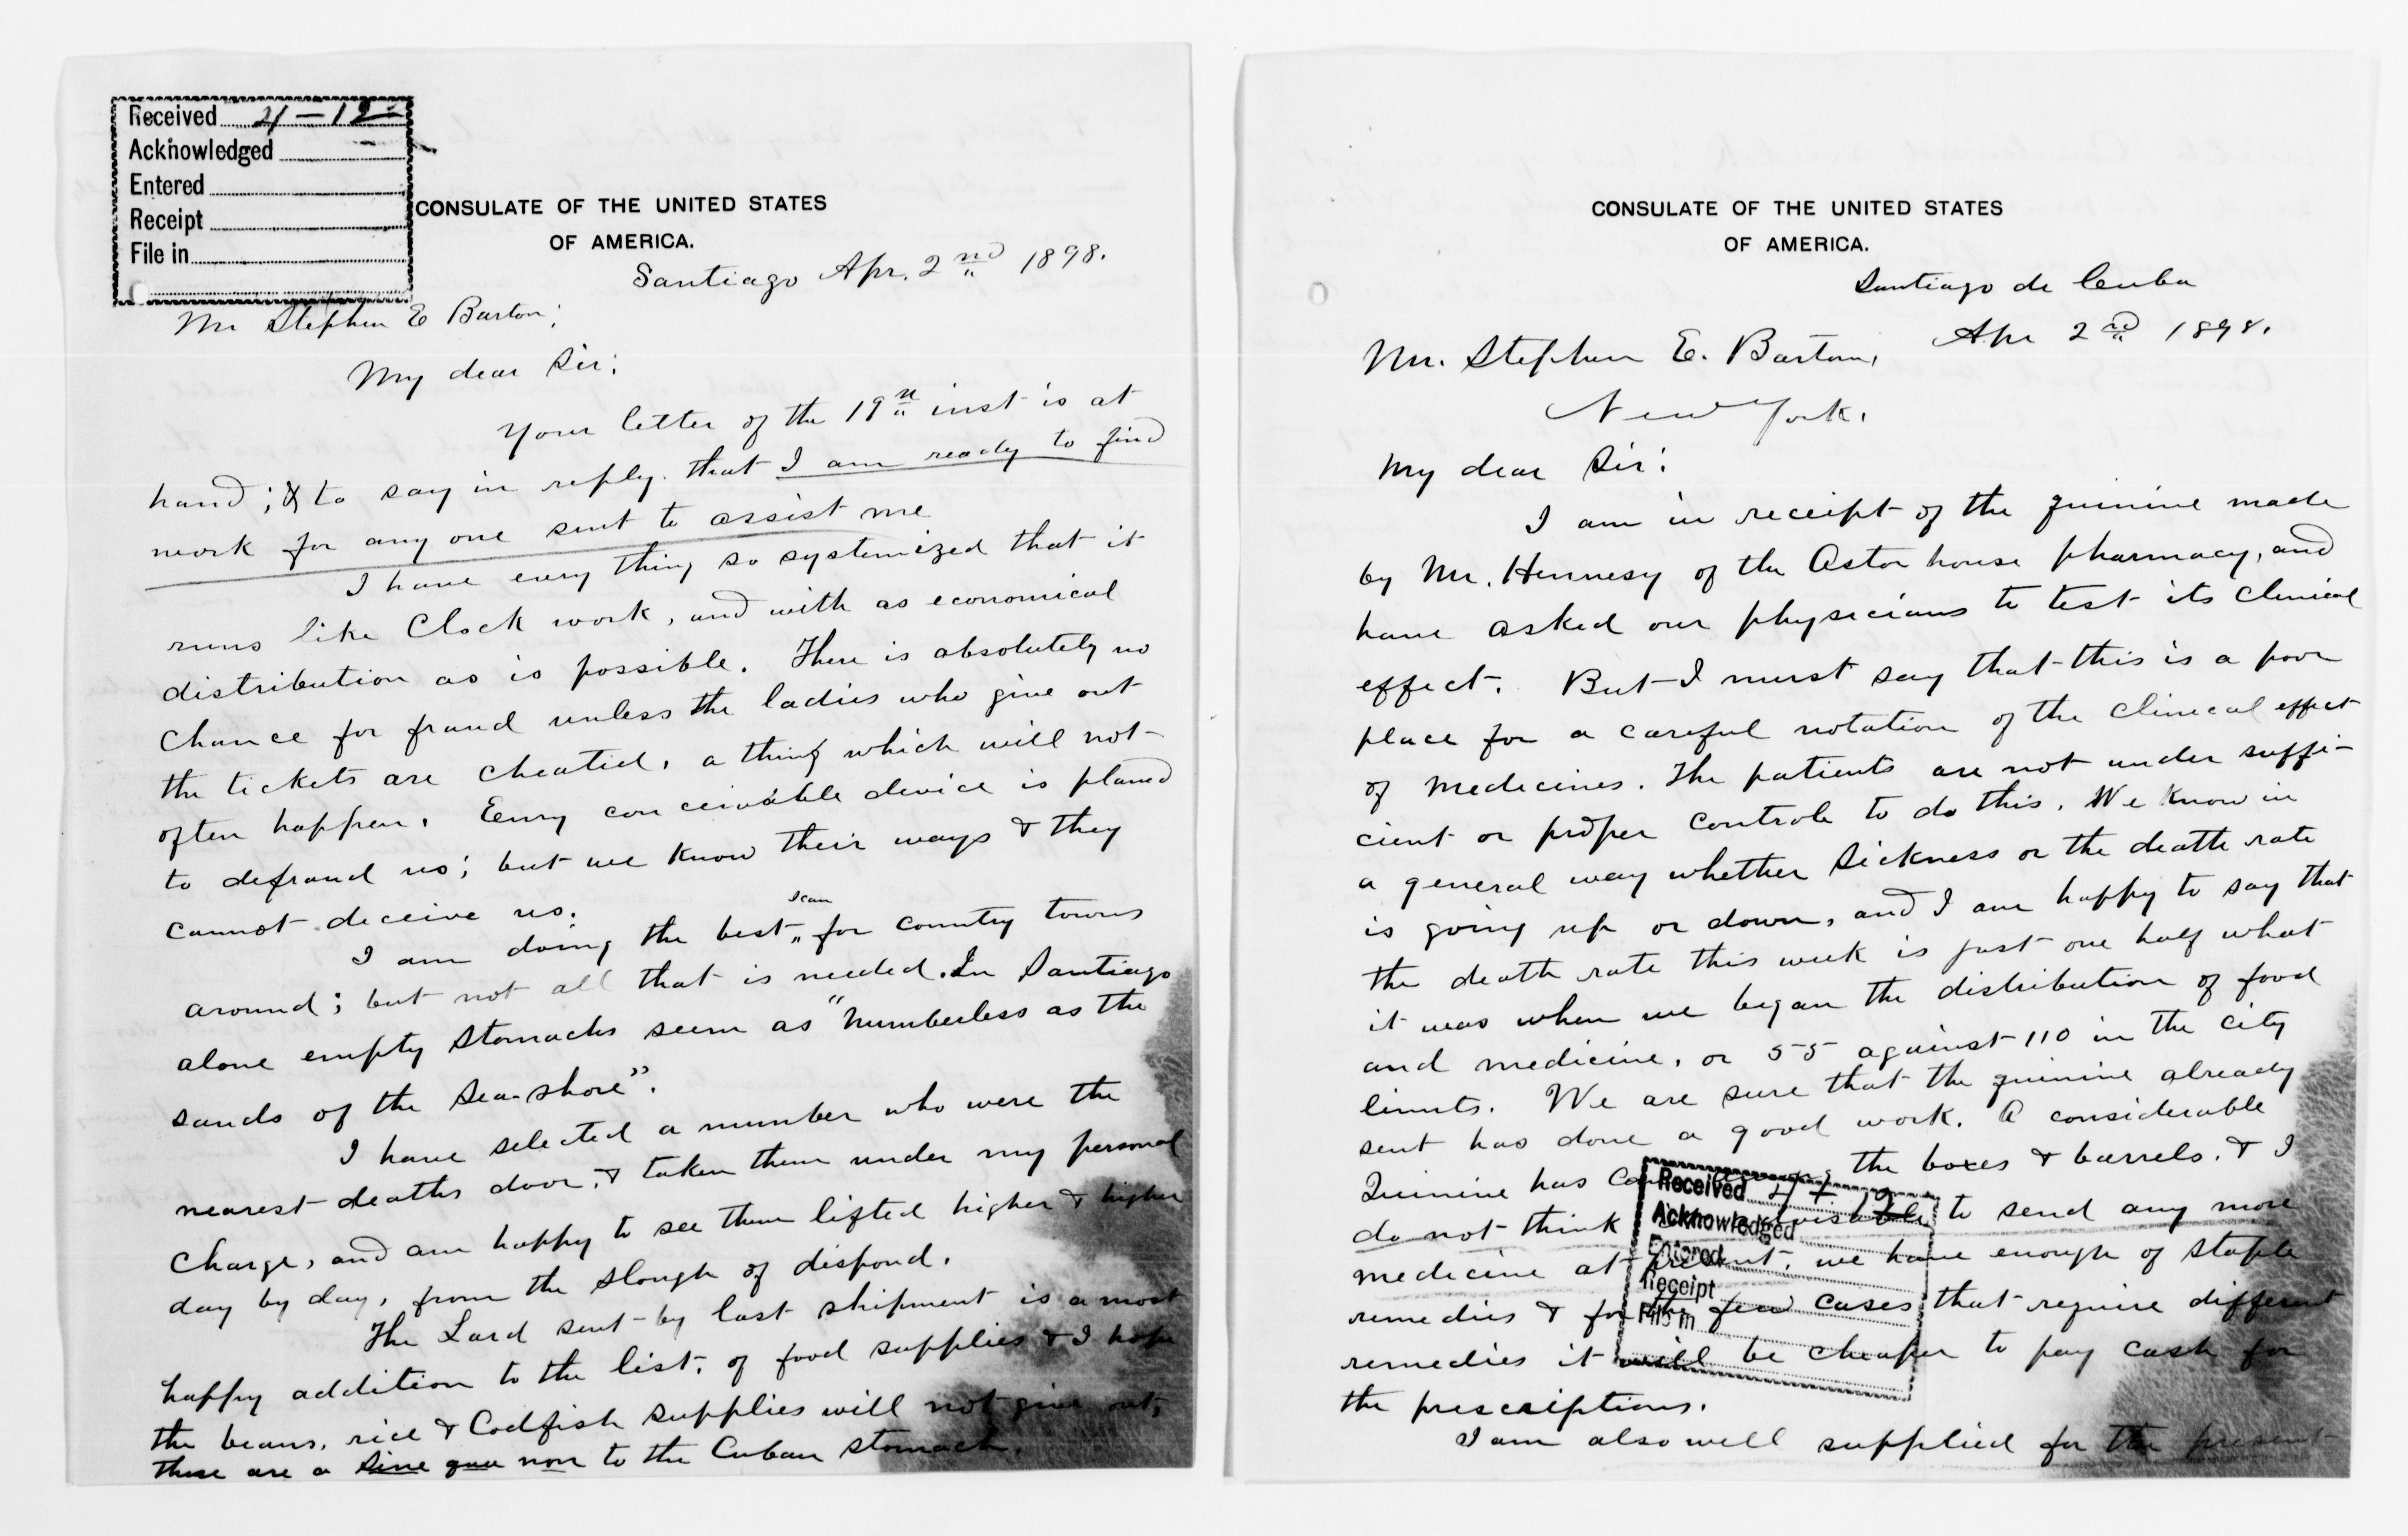 Received 4-12
Acknowledged
Entered
Receipt
File in
CONSULATE OF THE UNITED STATES
OF AMERICA.
Santiago Apr. 2nd 1898.
Mr Stephen E Barton;
My dear Sir:
Your letter of the 19th inst is at
hand; & to say in reply that I am ready to find
work for any one sent to assist me
I have every thing so systemized that it
runs like Clock work, and with as economical
distribution as is possible. There is absolutely no
chance for fraud unless the ladies who give out
the tickets are cheated, a thing which will not
often happen. Every conceivable device is planed
to defraud us; but we know their ways & they
cannot deceive us.
I am doing the best I can for country towns
around; but not all that is needed. In Santiago
alone empty stomachs seem as "numberless as the
sands of the sea-shore".
I have selected a number who were the
nearest deaths door, & taken them under my personal
charge, and am happy to see them lifted higher & higher
day by day, from the slough of dispond.
The Lard sent by last shipment is a most
happy addition to the list, of food supplies & I hope
the beans, rice & Codfish supplies will not give out,
these are a sine qua non to the Cuban stomach.
CONSULATE OF THE UNITED STATES
OF AMERICA.
Santiago de Cuba
Apr 2nd 1898.
Mr. Stephen E. Barton,
New York.
My dear Sir:
I am in receipt of the quinine made
by Mr. Hennesy of the Astor house pharmacy, and
have asked our physicians to test its clinical
effect. But I must say that this is a poor
place for a careful notation of the clinical effect
of medecines. The patients are not under suffi-
cient or proper controle to do this. We know in
a general way whether sickness or the death rate
is going up or down, and I am happy to say that
the death rate this week is just one half what
it was when we began the distribution of food
and medicine, or 55 against 110 in the city
limits. We are sure that the quinine already
sent has done a good work. A considerable
Quinine has come among the boxes & barrels. & I
do not think advisable to send any more
medecine at present, we have enough of staple
remedies & for the few cases that require different
remedies it will be cheaper to pay cash for
the prescriptions.
I am also well supplied for the present
Received 4-12
Acknowledged
Entered
Receipt
File in